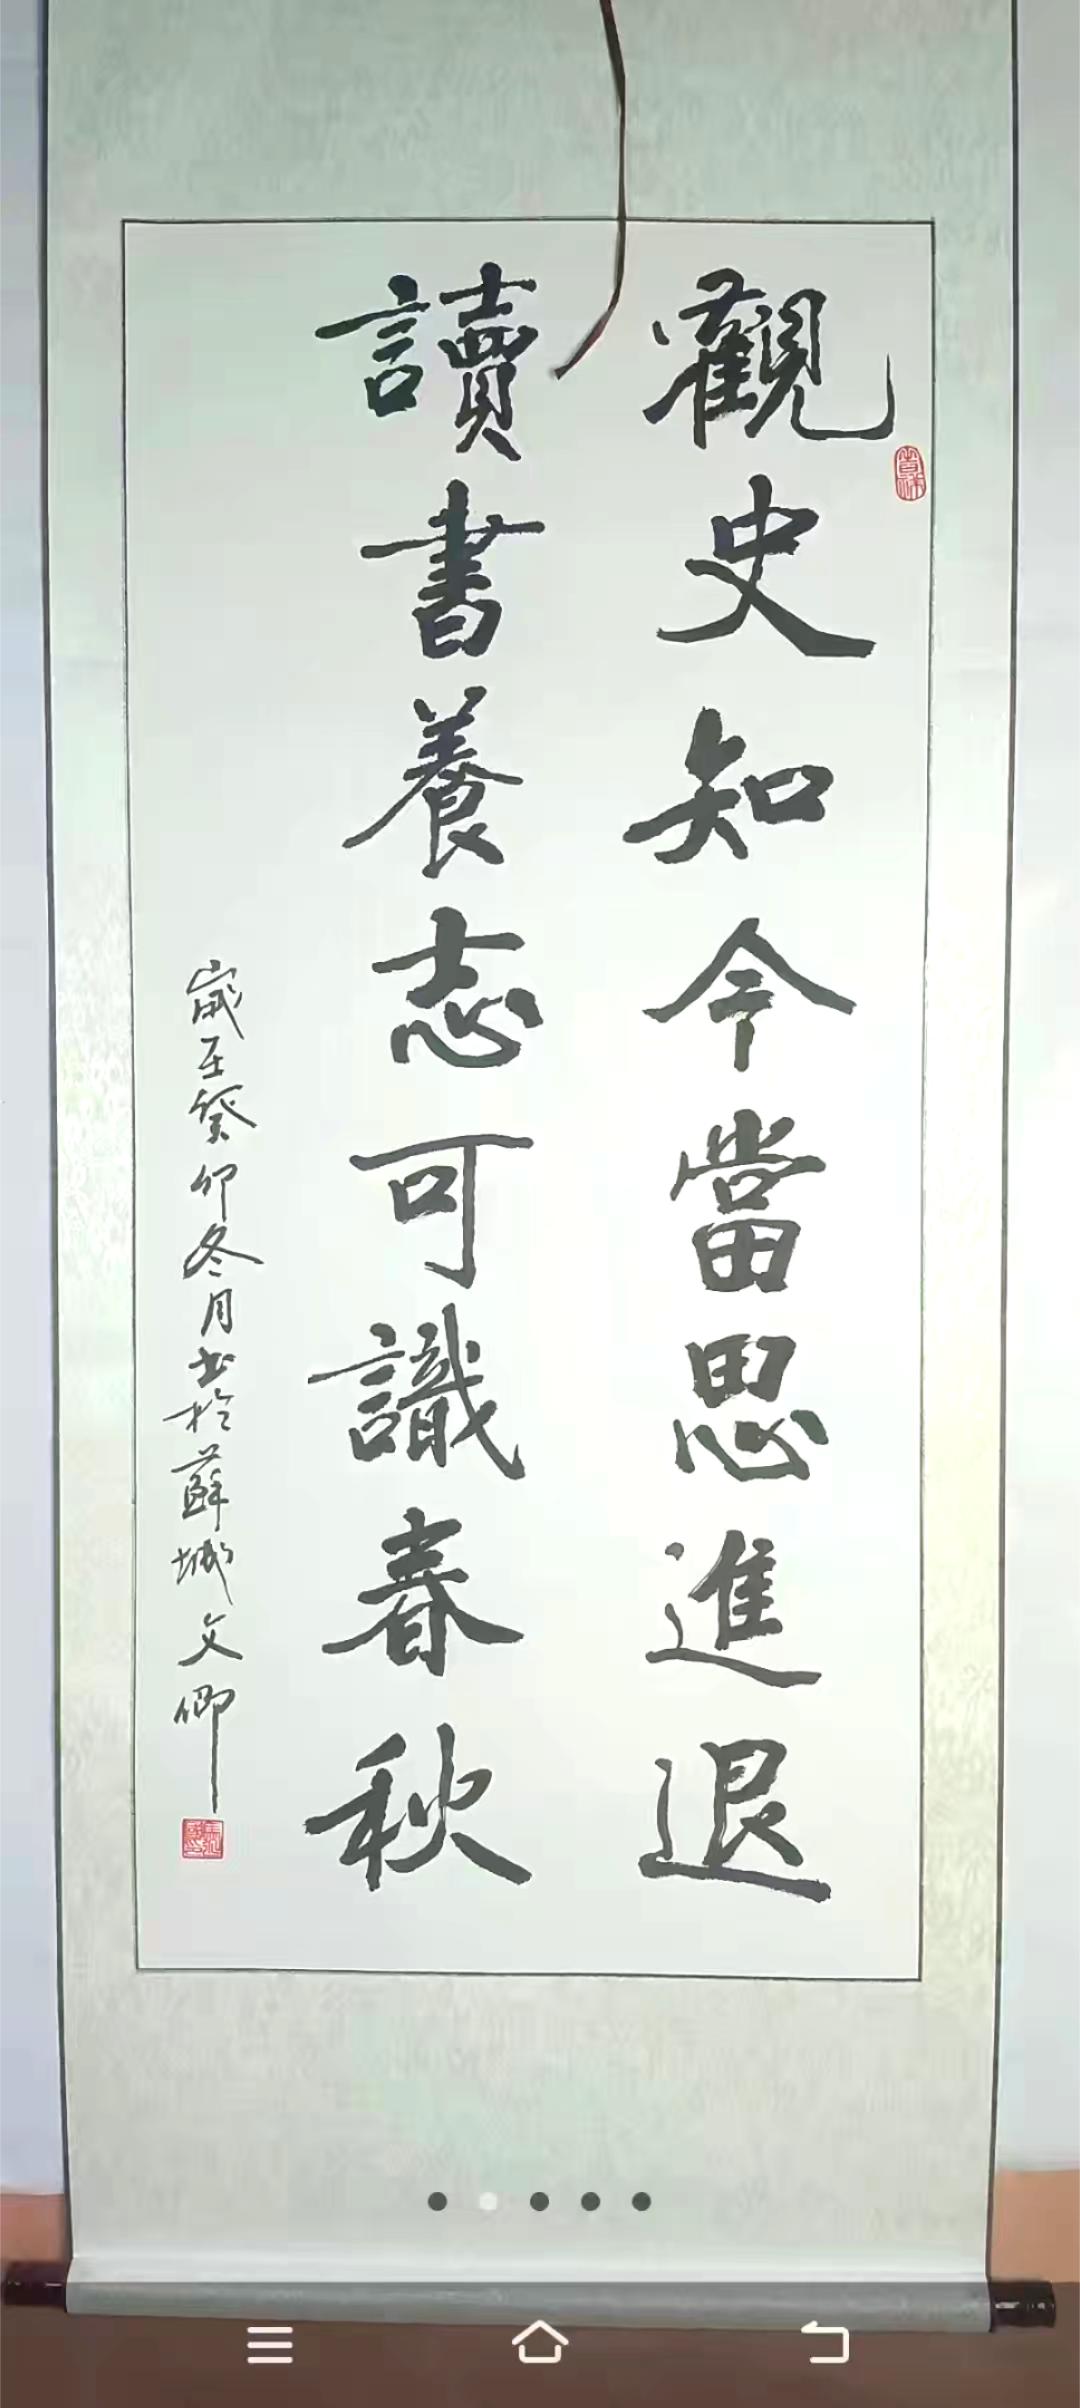 觀史知今當思進退
讀書養志可識春秋
歲在癸卯冬月書於蘇城文卿